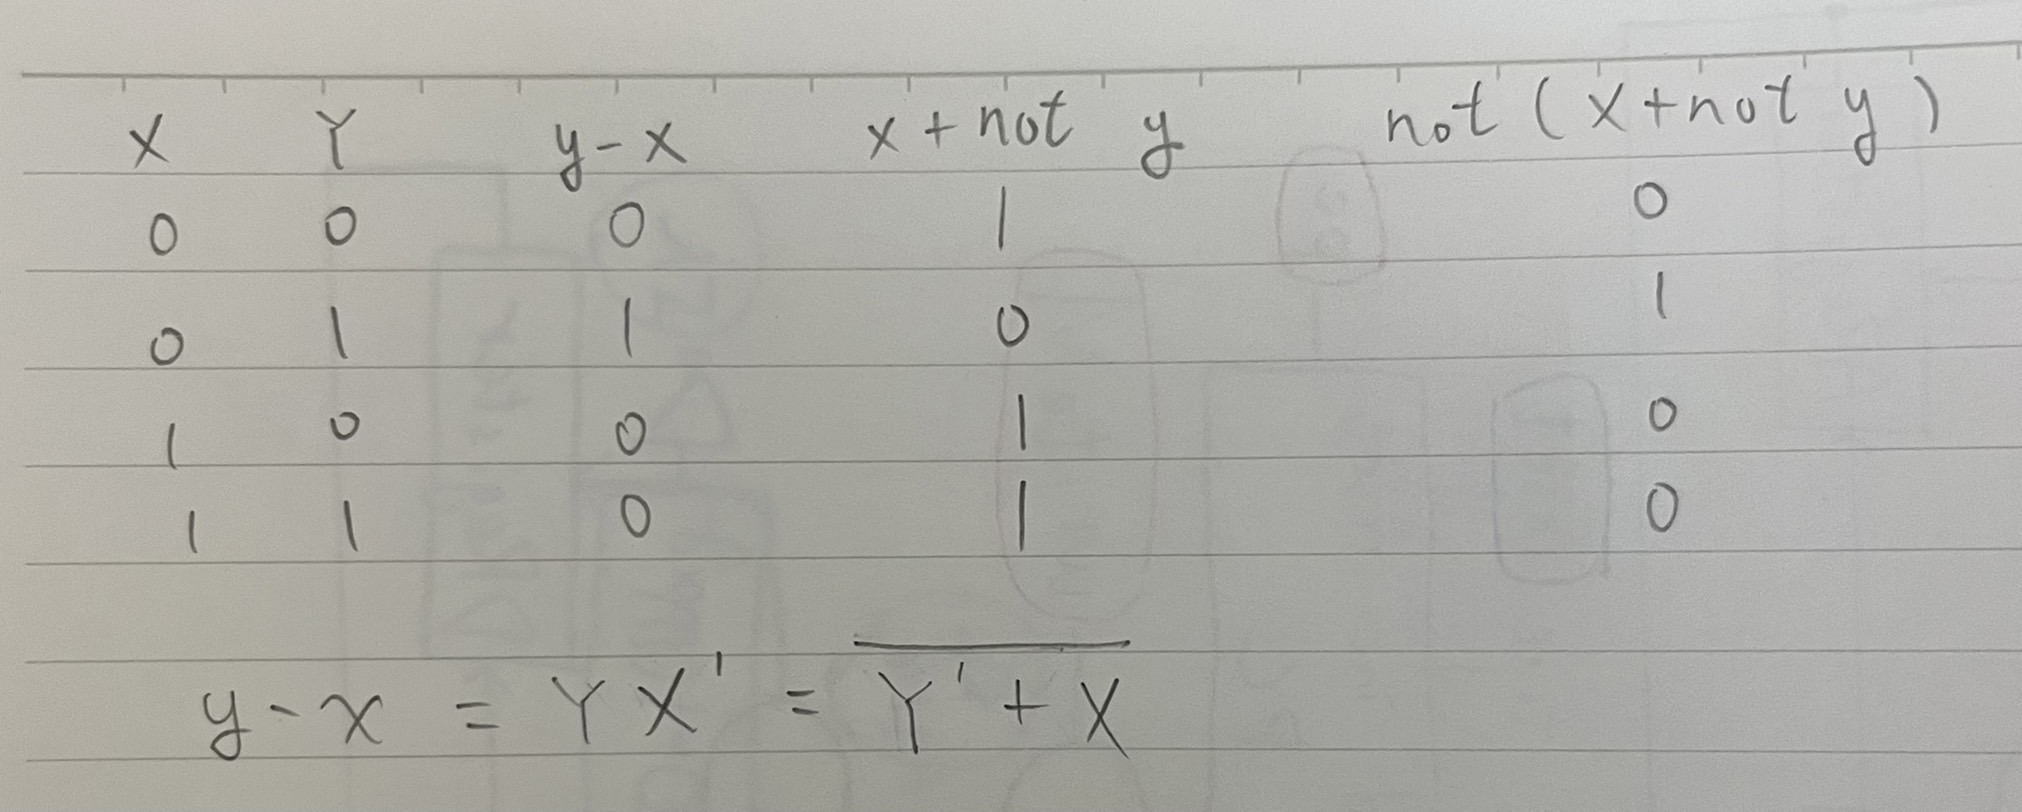 X Y y-x x+not y not(x+not y)
0 0 0 1 0
0 1 1 0 1
1 0 0 1 0
1 1 0 1 0
y-x = YX' = \overline{Y'+X}